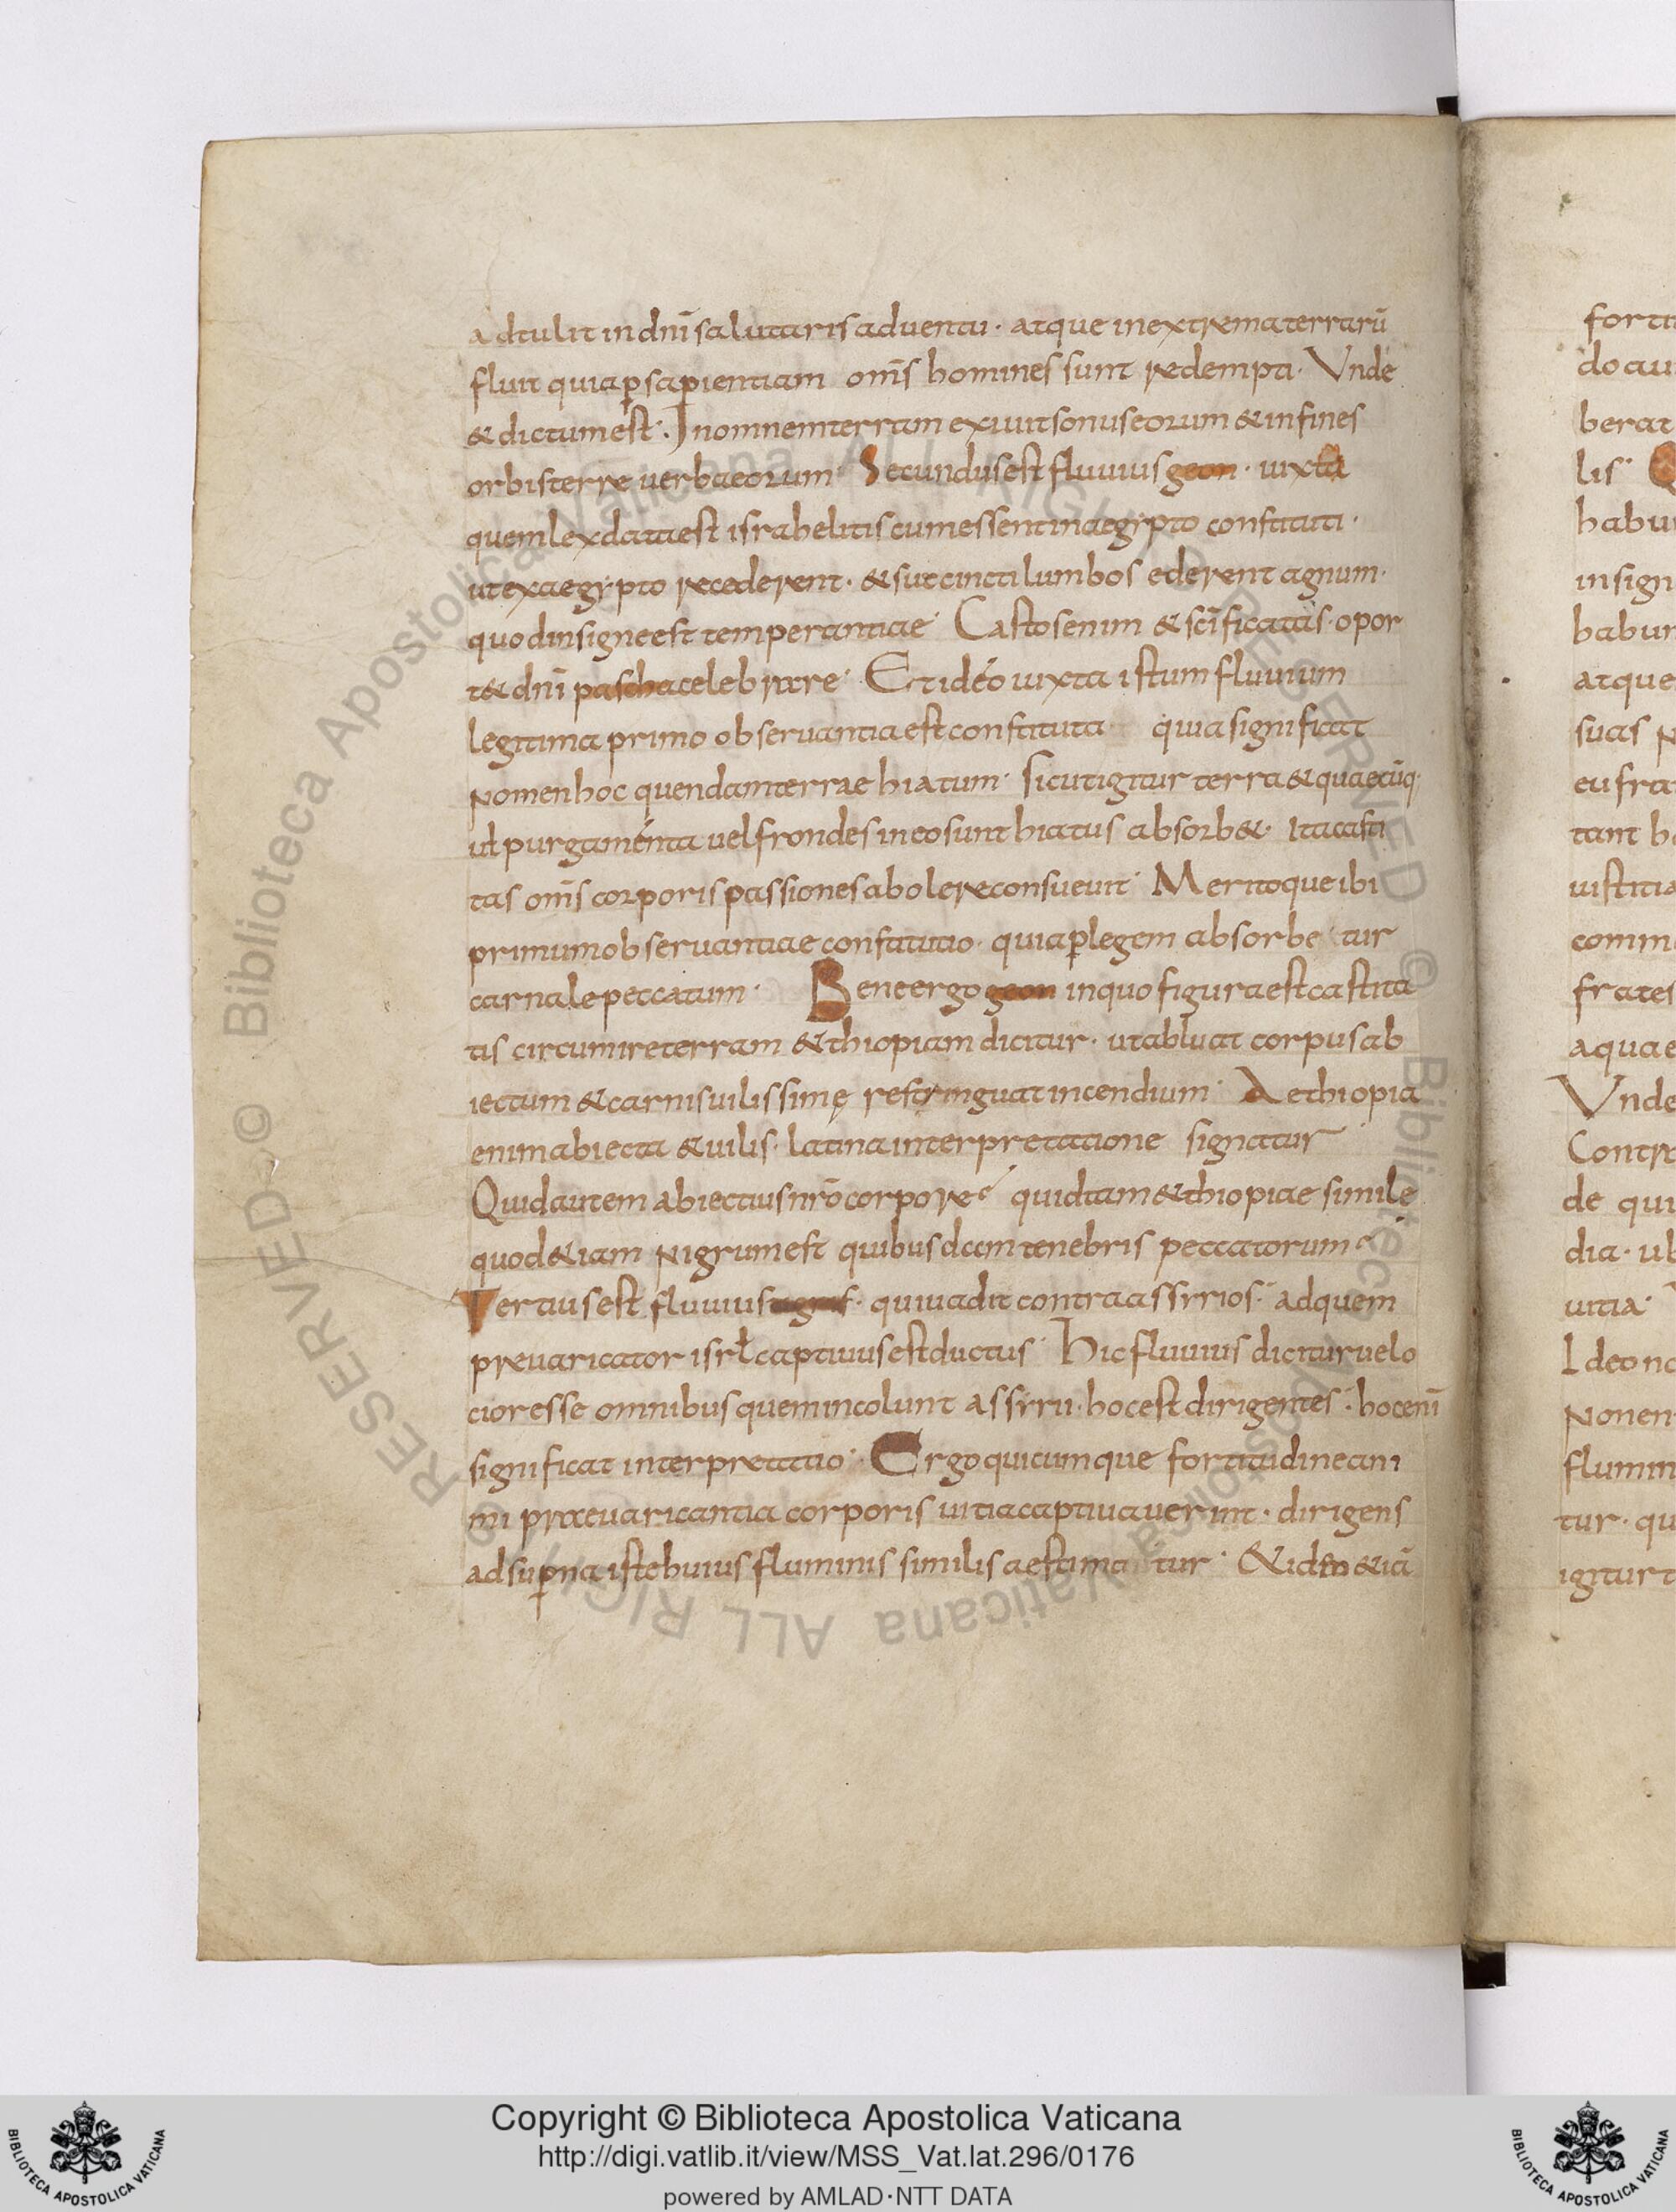 adtulit in dnī salutaris aduentu · atque in extrema terrarū
fluit quia p̱ sapientiam om̄s homines sunt redempti · Vnde
& dictum est · In omnem terram exiuit sonus eorum & in fines
orbis terre uerba eorum · Secundus est fluuius geon · iuxta
quem lex data est israhelitis cum essent in aegypto constituti ·
ut ex aegypto recederent · & succincti lumbos ederent agnum ·
quod insigne est temperantiae · Castos enim & sc̄ificatas · opor
t& dnī pascha celebrare · Et ideo iuxta istum fluuium
legitima primo obseruantia est constituta quia significat
nomen hoc quendam terrae hiatum · sicut igitur terra & quaecūq·
ut purgamenta uel frondes in eo sunt hiatus absorb& · Ita casti
tas om̄s corporis passiones abolere consueuit · Meritoque ibi
primum obseruantiae constitutio · quia p̱ legem absorbe tur
carnale peccatum · Bene ergo geon in quo figura est castita
tis circumire terram &thiopiam dicitur · ut abluat corpus ab
iectum & carnis uilissimę restringuat incendium · Aethiopia
enim abiecta & uilis · latina interpretatione signatur
Quid autem abiectius nr̄o corpore quid tam &thiopiae simile
quod &iam nigrum est quibusdam tenebris peccatorum
Tertius est fluuius tigris · qui uadit contra assyrios · ad quem
preuaricator isrł captiuus est ductus · Hic fluuius dicitur uelo
cior esse omnibus quem incolunt assyrii · hoc est dirigentes · hoc enī
significat interpretatio · Ergo quicumque fortitudine ani
mi praeuaricantia corporis uitia captiuauerint · dirigens
ad sup̱na iste huius fluminis similis aestima tur · & ideo &iā
fortit
do au
berat
lis · Q
habu
insign
babun
atque
suas n
eufra
tant h
iustitia
comm
frates
aquae
Vnde
Contra
de qui
dia · ub
uitia ·
Ideo no
nonen
flumin
tur · qu
igitur t
Copyright © Biblioteca Apostolica Vaticana
http://digi.vatlib.it/view/MSS_Vat.lat.296/0176
powered by AMLAD·NTT DATA
BIBLIOTECA APOSTOLICA VATICANA
BIBLIOTECA APOSTOLICA VATICANA
© Biblioteca Apostolica Vaticana ALL RIGHTS RESERVED